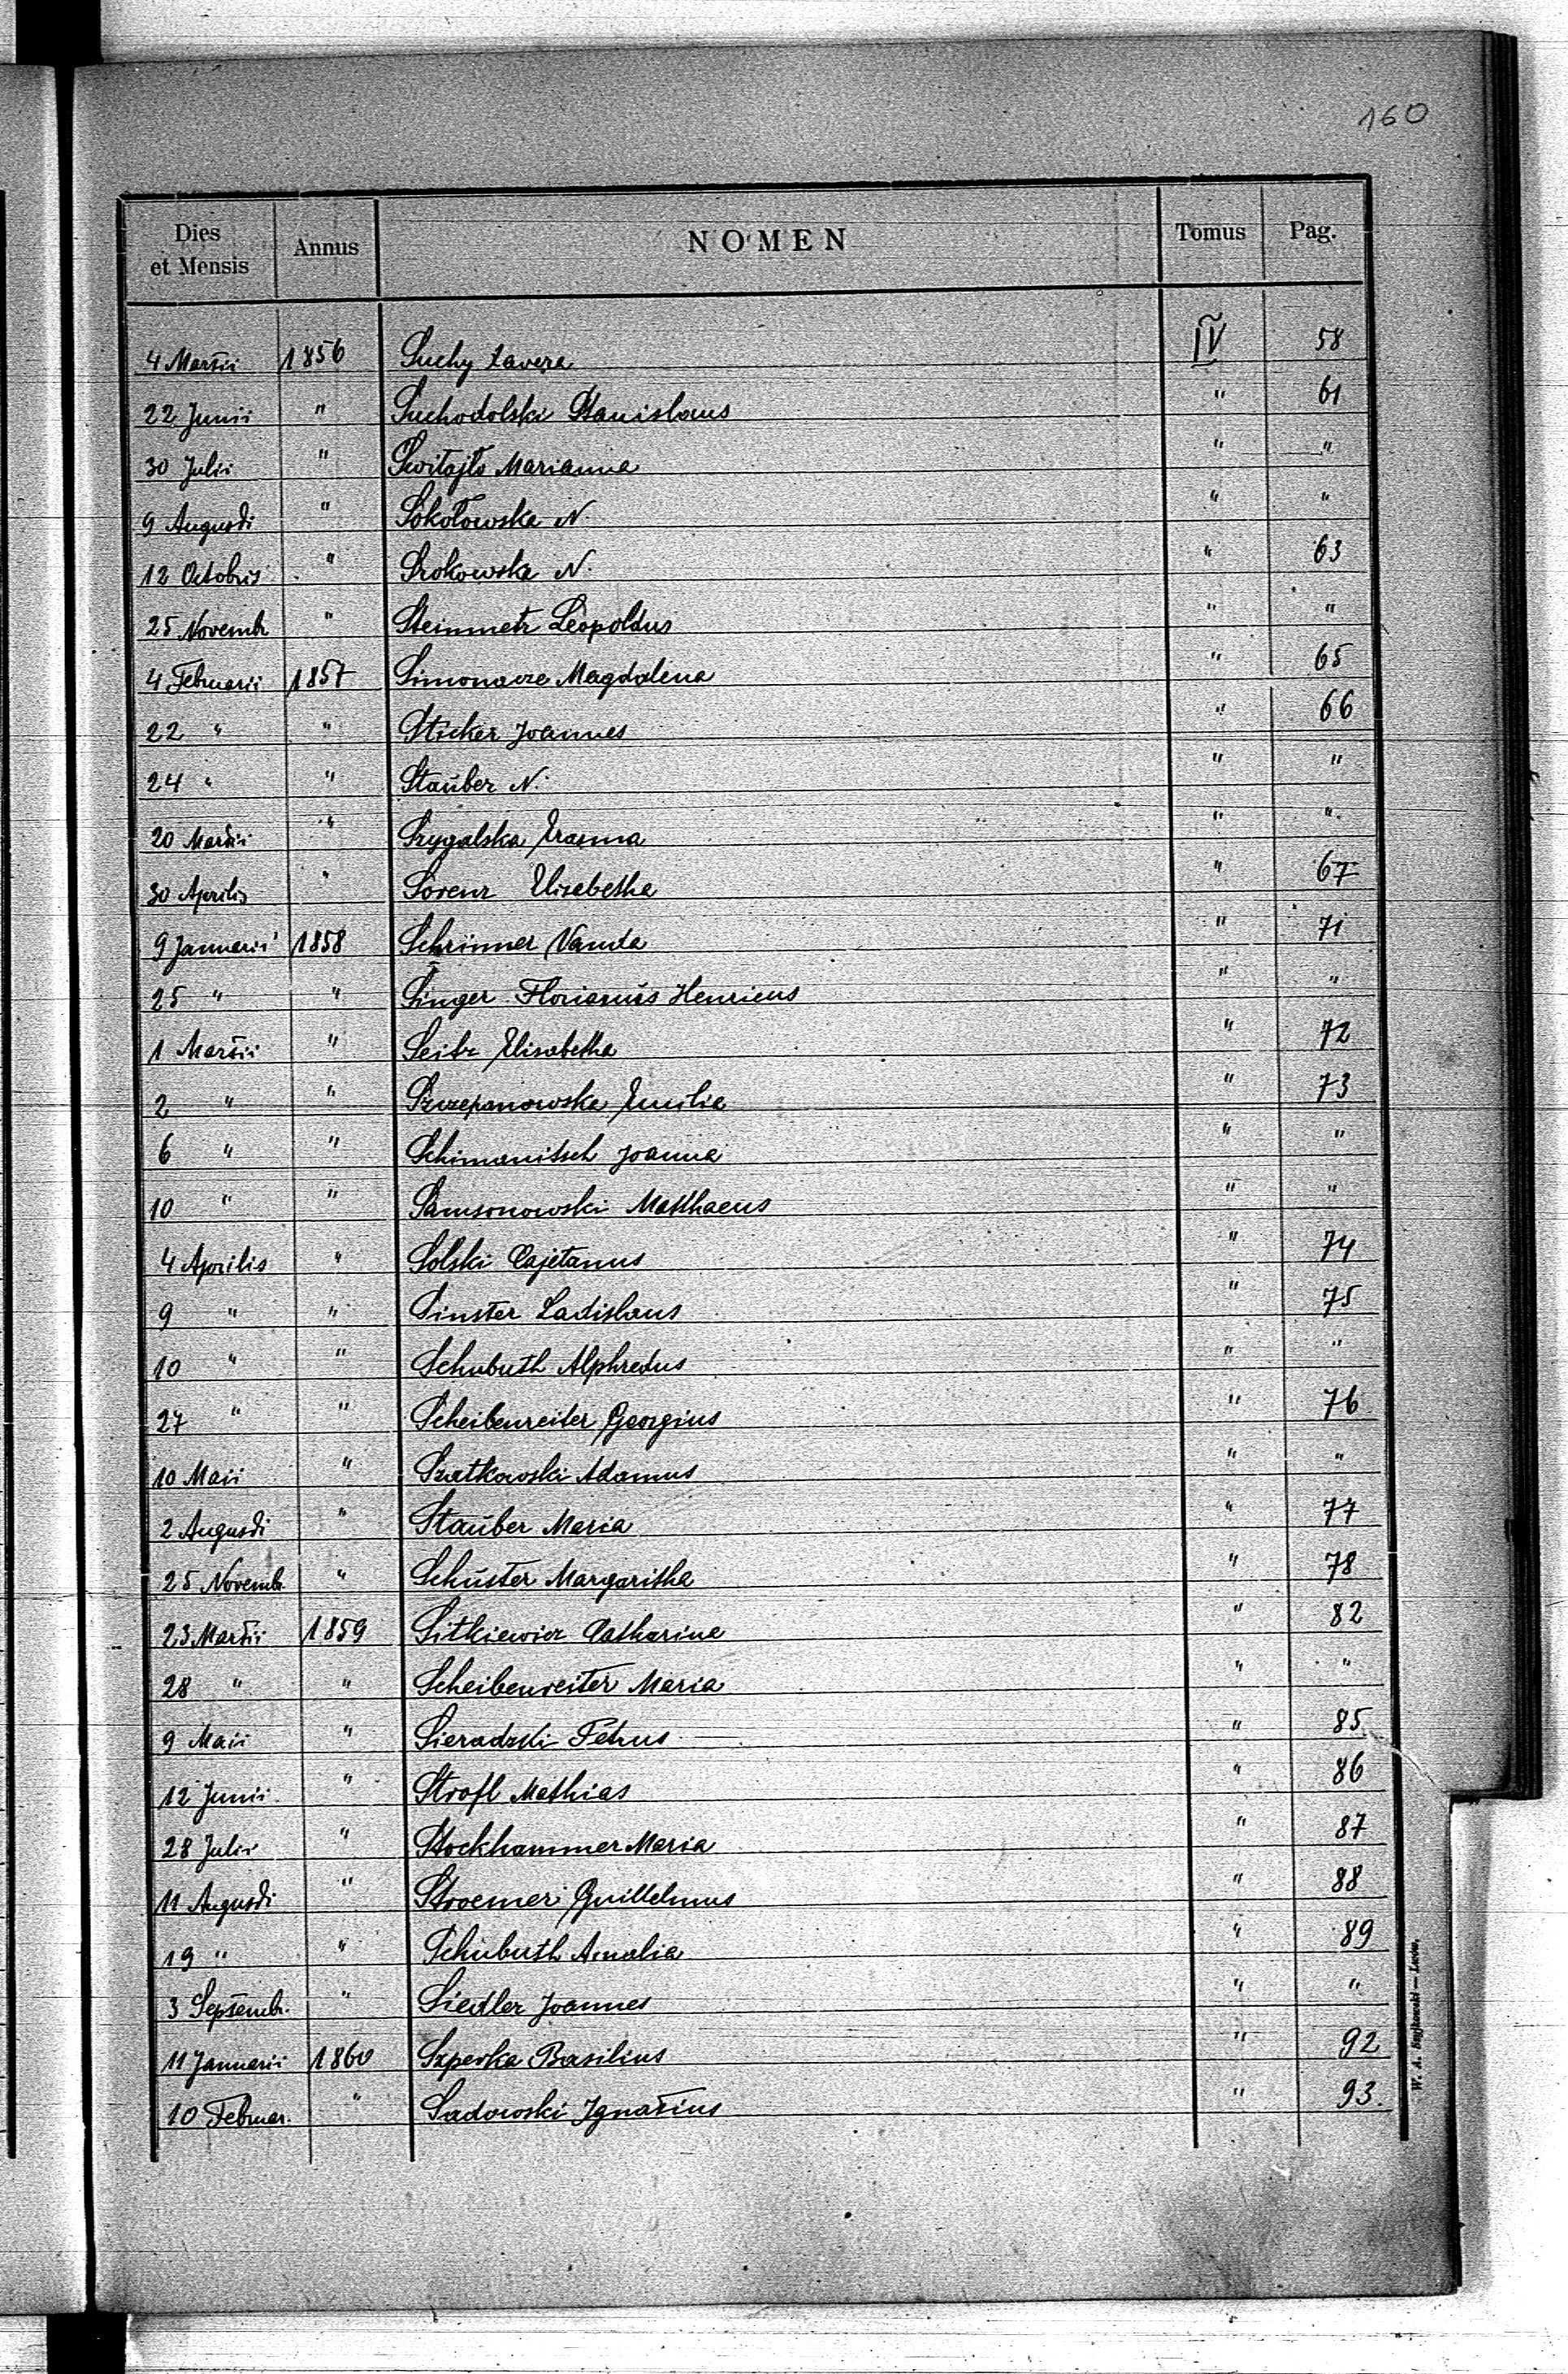 160
Dies et Mensis Annus NOMEN Tomus Pag.
4 Martii 1856 Suchy Xavera IV 58
22 Junii " Suchodolski Stanislaus " 61
30 Julii " Switajło Marianna " "
9 Augusti " Sokołowska N " "
12 Octobris " Srokowska N. " 63
25 Novembr " Steinmetz Leopoldus " "
4 Februarii 1857 Simonowze Magdalena " 65
22 " " Sticker Joannes " 66
24 " " Stauber N. " "
20 Martii " Szygalska Erasma " "
30 Aprilis " Sorenz Elisabetha " 67
9 Januarii 1858 Schrinner Vanda " 71
25 " " Singer Florianus Henricus " "
1 Martii " Seitz Elisabetha " 72
2 " " Szczepanowska Emilia " 73
6 " " Schimanitsch Joanna " "
10 " " Samsonowski Matthaeus " "
4 Aprilis " Solski Cajetanus " 74
9 " " Sinster Ladislaus " 75
10 " " Schubuth Alphredus " "
27 " " Scheibenreiter Georgius " 76
10 Maii " Szatkowski Adamus " "
2 Augusti " Stauber Maria " 77
25 Novemb. " Schuster Margaritha " 78
23 Martii 1859 Sitkiewicz Catharina " 82
28 " " Scheibenreiter Maria " "
9 Maii " Sieradzki Petrus " 85
12 Junii " Strofl Mathias " 86
28 Julii " Stockhammer Maria " 87
11 Augusti " Stroemer Guillelmus " 88
19 " " Schubuth Amalia " 89
3 Septembr. " Siedler Joannes " "
11 Januarii 1860 Szperka Basilius " 92
10 Februar. " Sadowski Ignatius " 93.